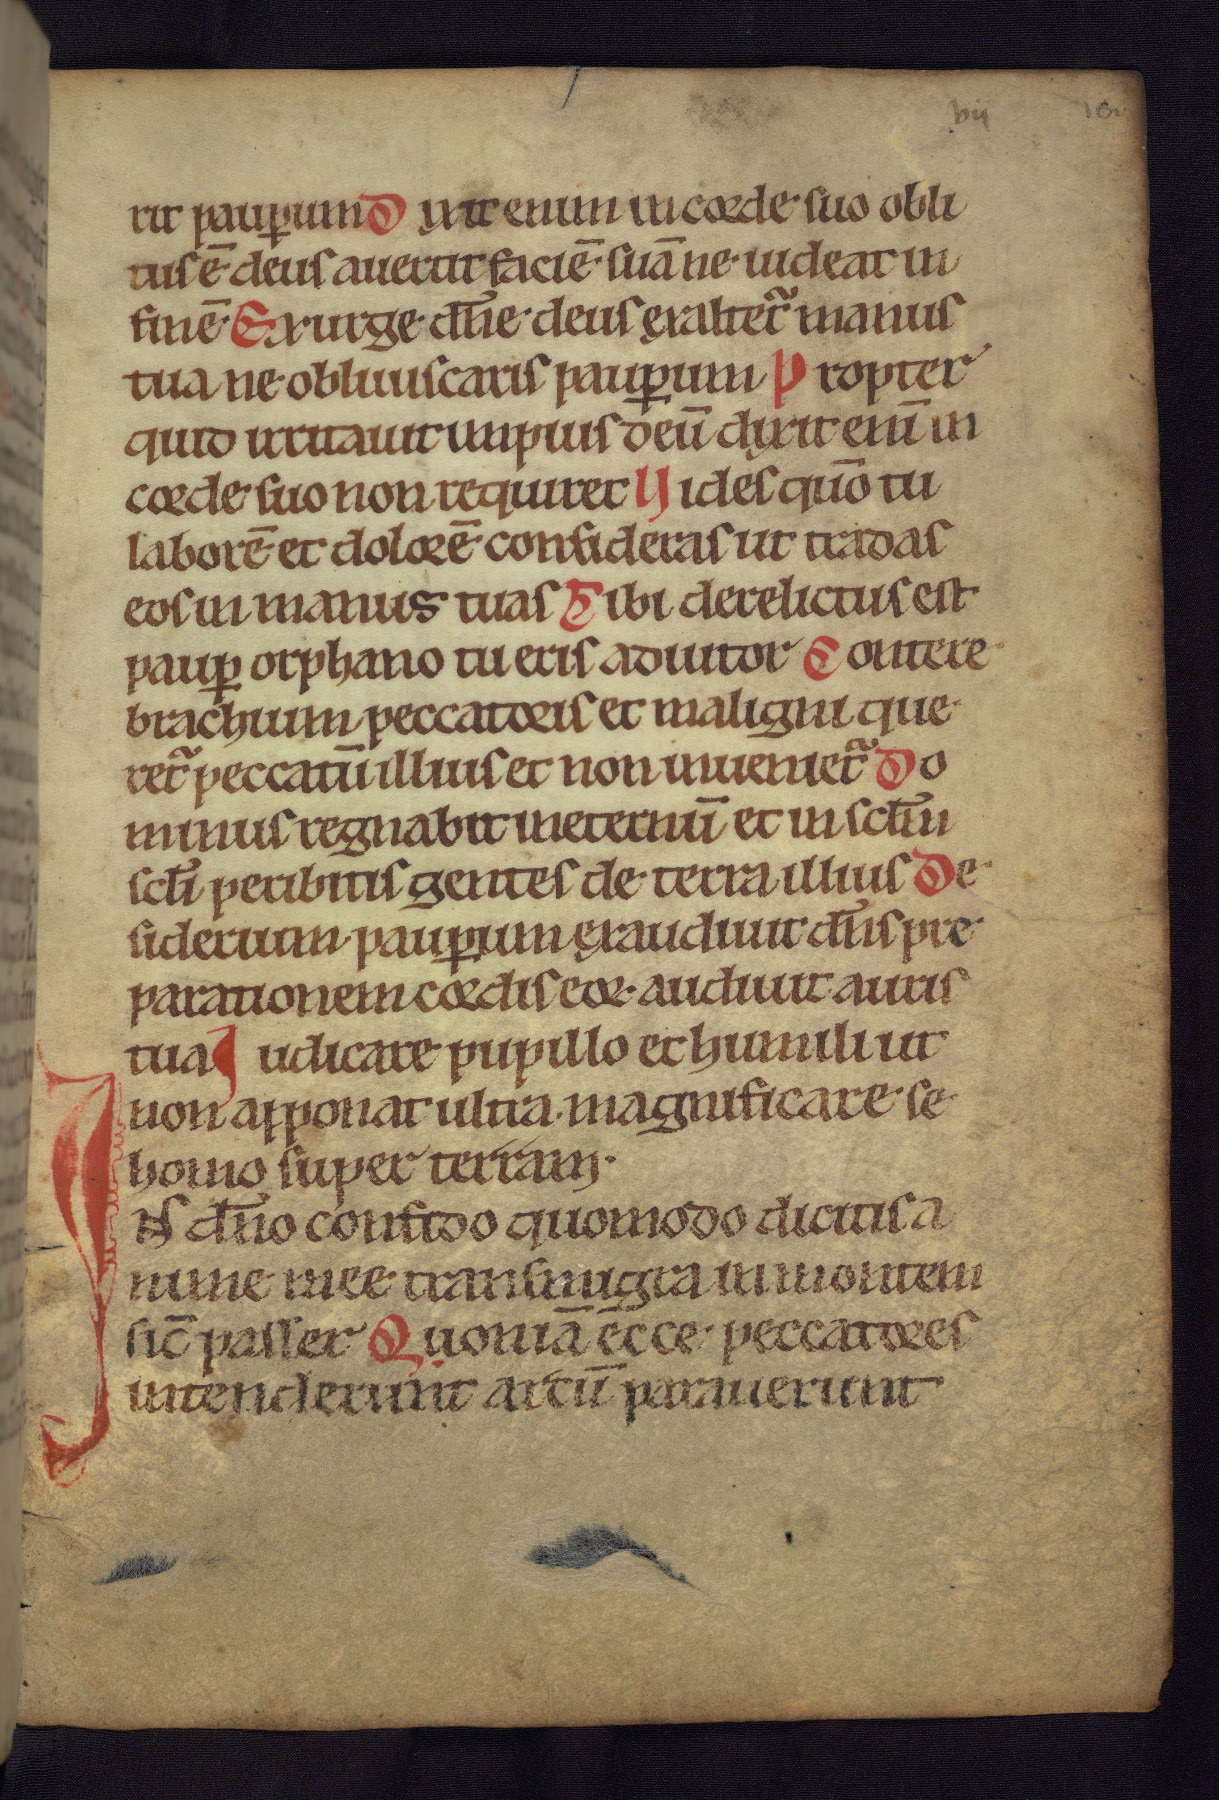 bij 10.
rit pauꝑum D yxit enim in corde suo obli
tus ē deus auertit faciē suā ne uideat in
finē Exurge dn̄e deus exaltet᷑ manus
tua ne obliuiscaris pauꝑum Propter
quid irritauit impius deū dixit enī in
corde suo non requiret Uides qūo tu
laborē et dolorē consideras ut tradas
eos in manus tuas Tibi derelictus est
paup̱ orphano tu eris adiutor Contere
brachium peccatoris et maligni que
ret᷑ peccatū illius et non inueniet᷑ Do
minus regnabit ineternū et in sc̄lm
sc̄li peribitis gentes de terra illius De
siderium pauꝑum exaudiuit dn̄s pre
parationem cordis eoꝝ audiuit auris
tua Iudicare pupillo et humili ut
non apponat ultra magnificare se
homo super terram.
IN dn̄o confido quomodo dicitis a
nime mee transmigra in montem
sic̄ passer Quoniā ecce peccatores
intenderunt arcū parauerunt